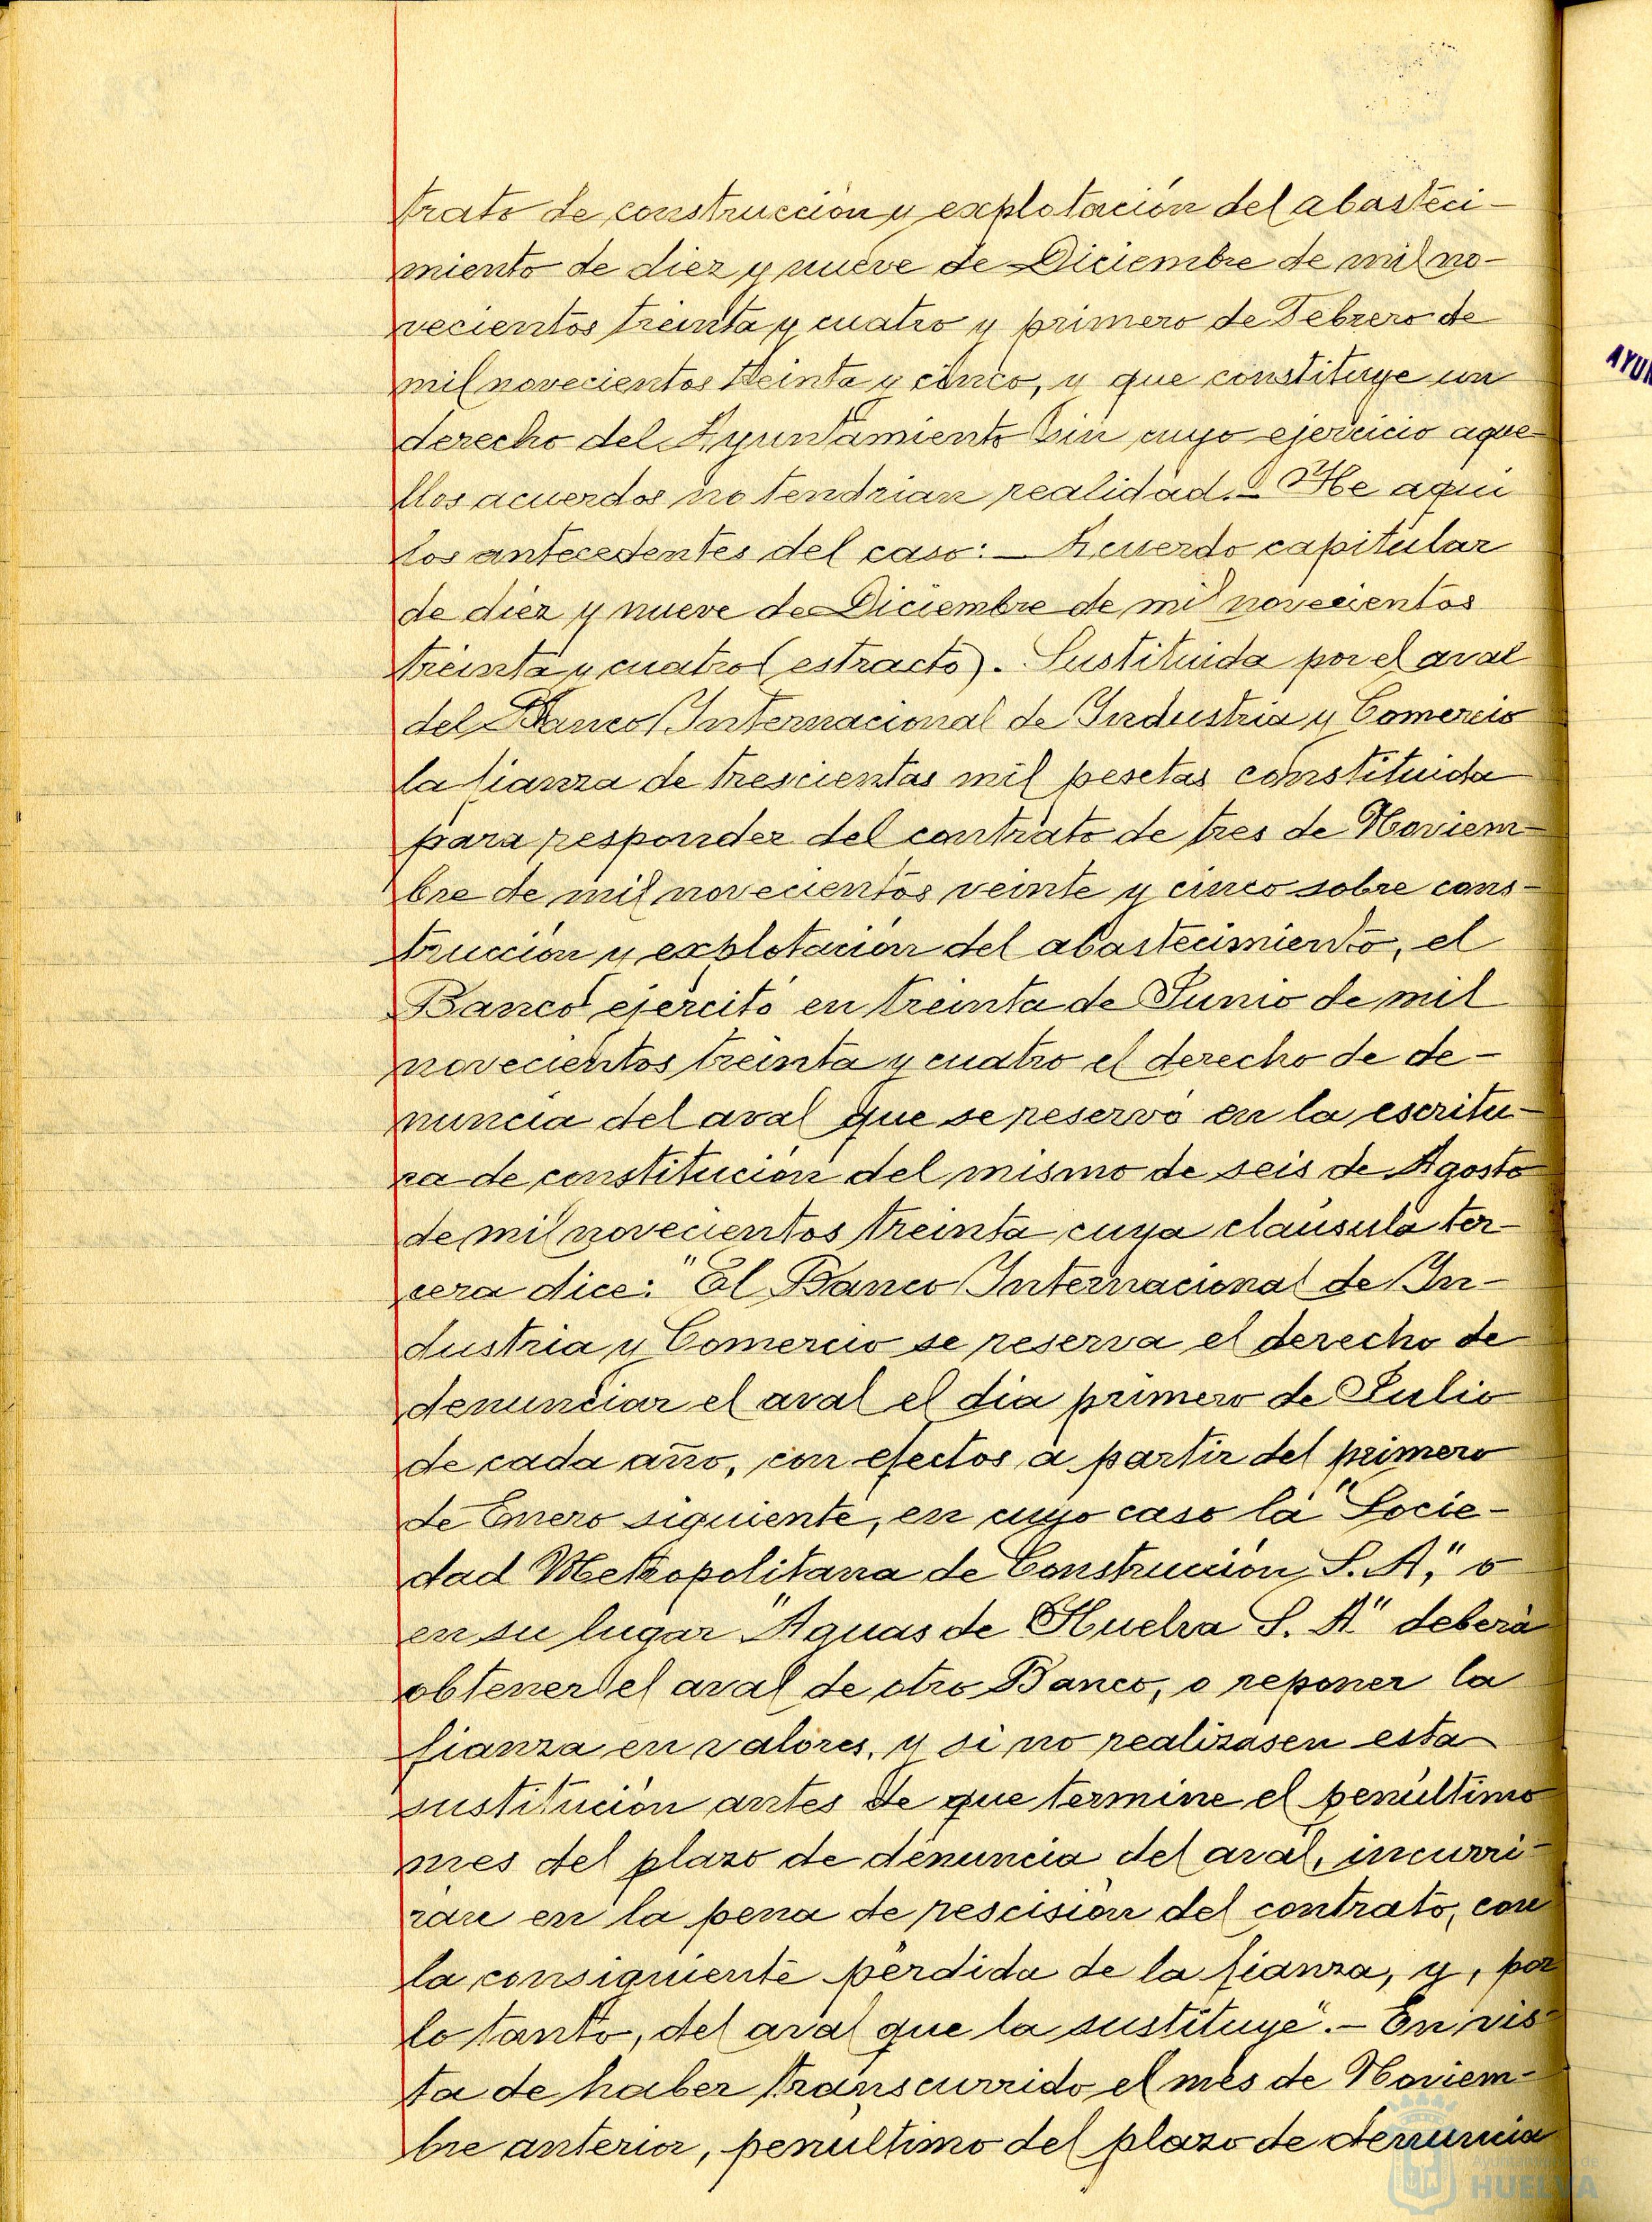 trato de construcción y explotación del abasteci-
miento de diez y nueve de Diciembre de mil no-
vecientos treinta y cuatro y primero de Febrero de
mil novecientos treinta y cinco, y que constituye un
derecho del Ayuntamiento sin cuyo ejercicio aque-
llos acuerdos no tendrian realidad.- He aqui
los antecedentes del caso: - Acuerdo capitular
de diez y nueve de Diciembre de mil novecientos
treinta y cuatro (estracto). Sustituida por el aval
del Banco Internacional de Industria y Comercio
la fianza de trescientas mil pesetas constituida
para responder del contrato de tres de Noviem-
bre de mil novecientos veinte y cinco sobre cons-
trucción y explotación del abastecimiento, el
Banco ejercitó en treinta de Junio de mil
novecientos treinta y cuatro el derecho de de-
nuncia del aval que se reservó en la escritu-
ra de constitución del mismo de seis de Agosto
de mil novecientos treinta cuya clausula ter-
cera dice: "El Banco Internacional de In-
dustria y Comercio se reserva el derecho de
denunciar el aval el dia primero de Julio
de cada año, con efectos a partir del primero
de Enero siguiente, en cuyo caso la "Socie-
dad Metropolitana de Construcción, S. A," o
en su lugar "Aguas de Huelva S. A" deberá
obtener el aval de otro Banco, o reponer la
fianza en valores, y si no realizasen esta
sustitución antes de que termine el penúltimo
mes del plazo de denuncia del aval, incurri-
rán en la pena de rescisión del contrato, con
la consiguiente pérdida de la fianza, y, por
lo tanto, del aval que la sustituye".- En vis-
ta de haber transcurrido el mes de Noviem-
bre anterior, penultimo del plazo de denuncia
AYUN
Ayuntamiento de
HUELVA